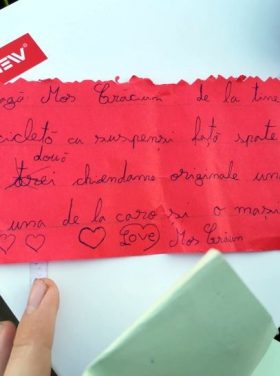 NEW
agă Moș Crăciun de la tine
cicletă cu suspensi față spate
două
trei chiendame originale un
una de la caro și o mași
Love Moș Crăciun